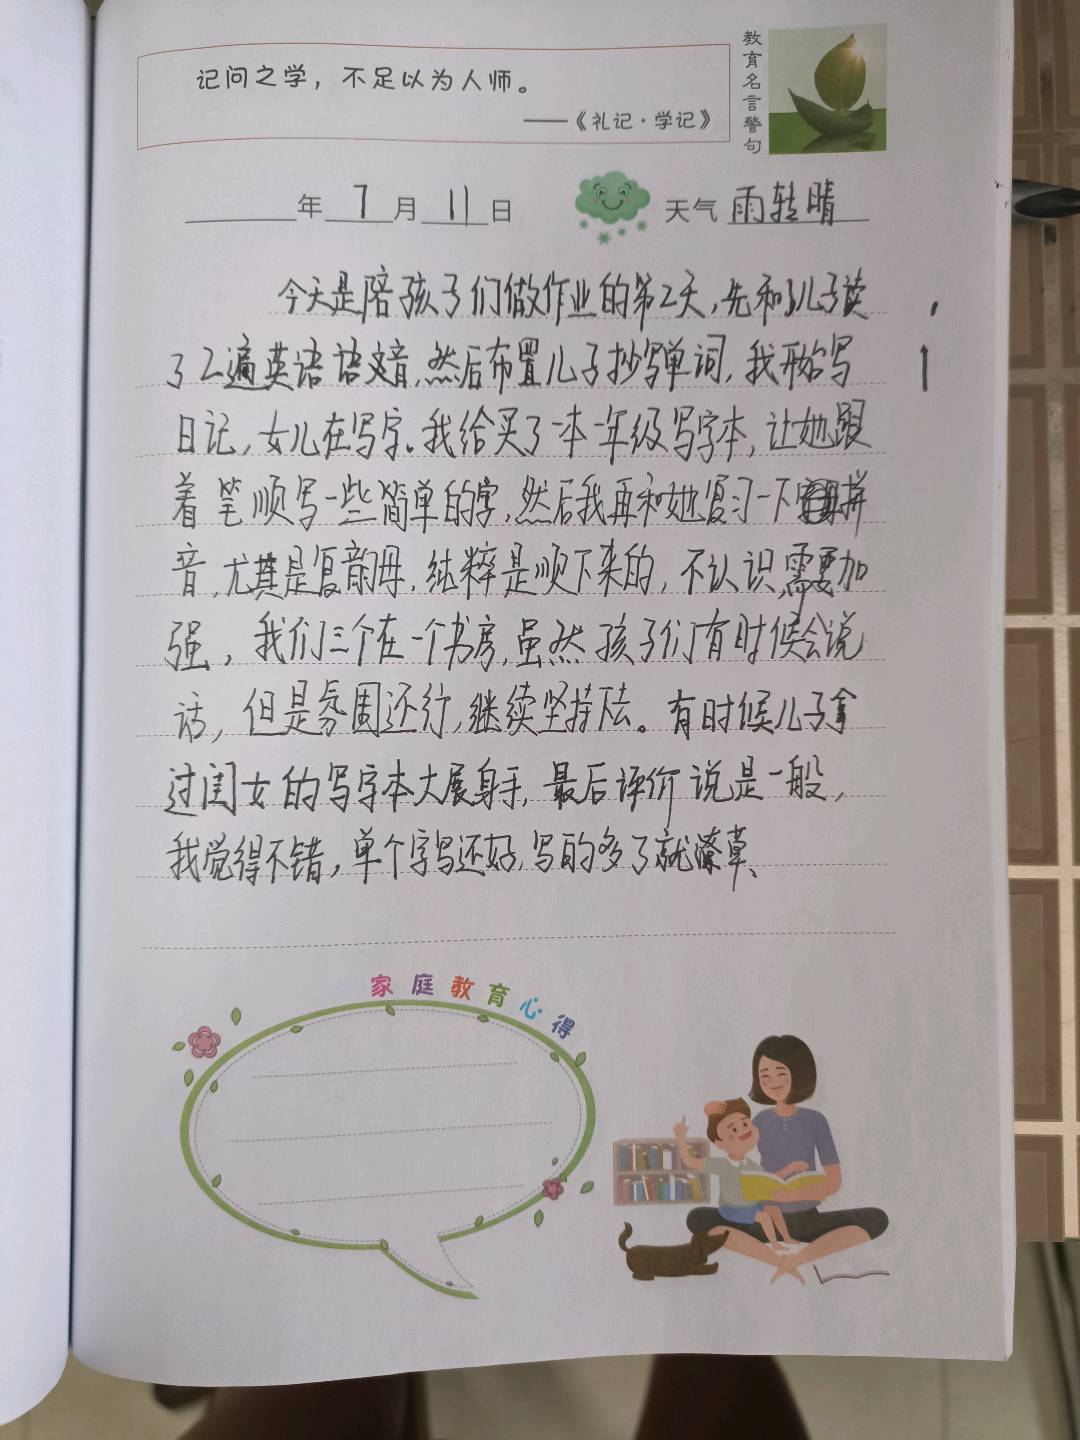 记问之学，不足以为人师。
——《礼记·学记》
教育名言警句
年 7 月 11 日 天气 雨转晴
今天是陪孩子们做作业的第2天，先和儿子读
了2遍英语语音，然后布置儿子抄写单词，我开始写
日记，女儿在写字。我给买了一本一年级写字本，让她跟
着笔顺写一些简单的字，然后我再和她复习一下拼
音，尤其是复韵母，纯粹是顺下来的，不认识，需要加
强，我们三个在一个书房，虽然孩子们有时候会说
话，但是氛围还行，继续坚持下去。有时候儿子拿
过闺女的写字本大展身手，最后评价说是一般，
我觉得不错，单个字写还好，写的多了就潦草、
家庭教育心得